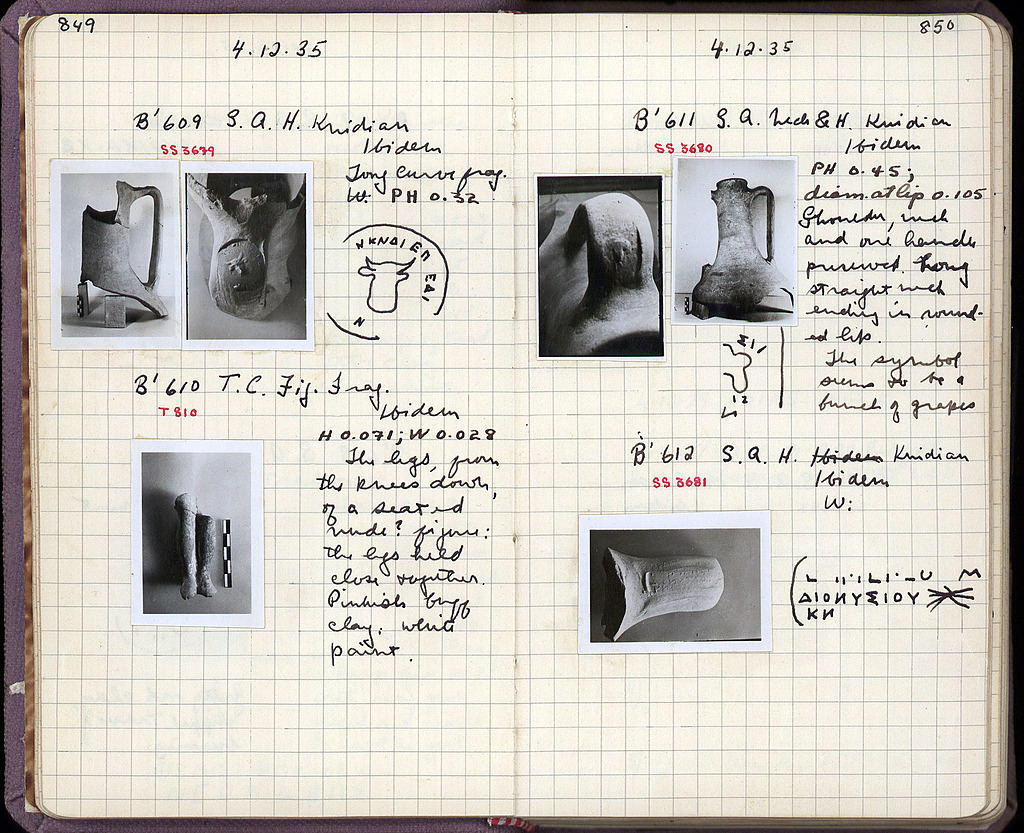 849
4.12.35
B'609 S.A.H. Knidian
SS 3679
Ibidem
Long curve frag.
W. PH 0.32
ΚΝΙΔΙ ΕΠ
Ν
B'610 T.C. Fig. Frag.
T 810
Ibidem
H 0.071; W 0.028
The legs, from
the knees down,
of a seated
nude? figure:
the legs held
close together.
Pinkish buff
clay. white
paint.
850
4.12.35
B'611 S.A. Neck & H. Knidian
SS 3680
Ibidem
PH 0.45;
diam at lip 0.105
Shoulder, neck
and one handle
preserved. Long
straight neck
ending in round-
ed lip.
The symbol
seems to be a
bunch of grapes
Σ Ι
B'612 S.A.H. Ibidem Knidian
SS 3681
Ibidem
W:
ΔΙΟΝΥΣΙΟΥ
ΚΝ